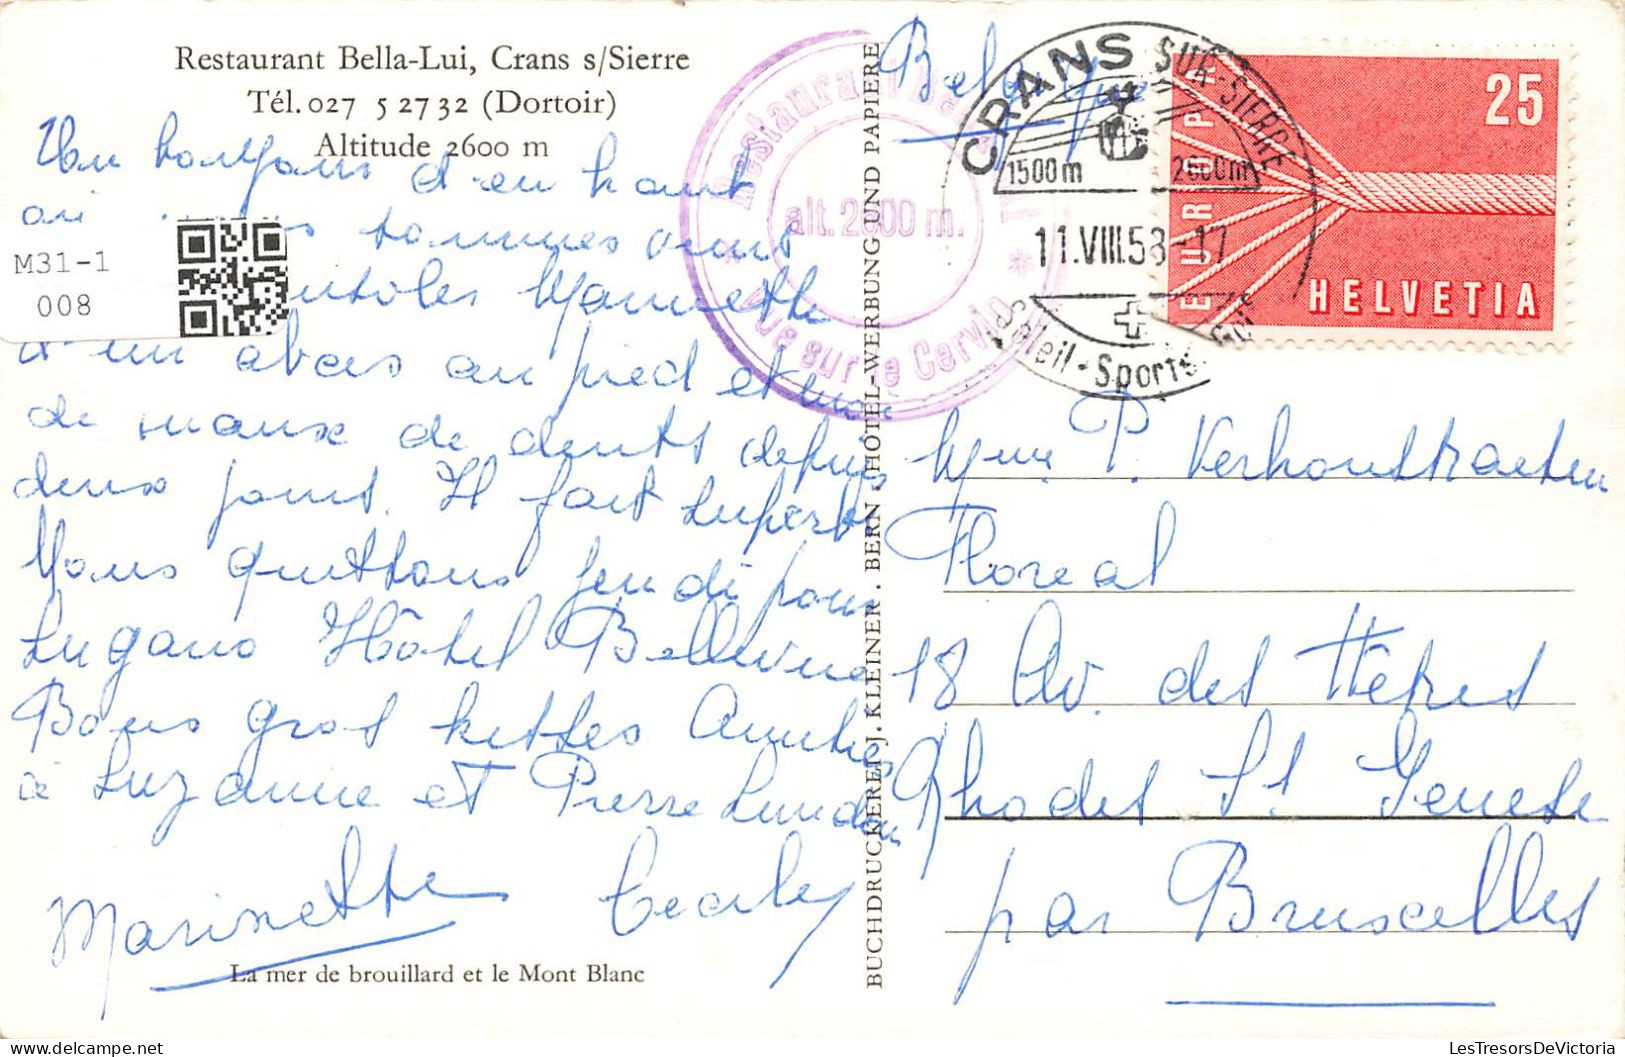 Restaurant Bella-Lui, Crans s/Sierre
Tél. 027 5 27 32 (Dortoir)
Altitude 2600 m
Un bonjour d'en haut
où nous sommes
Marinette
d'un abcès au pied et moi
de maux de dents depuis
deux jours. Il fait superbe
Nous quittons jeudi pour
Lugano Hôtel Bellevue
Bons gros Amitiés
à Suzanne et Pierre
Marinette Cecily
La mer de brouillard et le Mont Blanc
M31-1
008
BUCHDRUCKEREI J. KLEINER . BERN . HOTEL-WERBUNG UND PAPIERE
Restaurant
alt. 2600 m.
Vue sur le Cervin
CRANS SUR-SIERRE
1500m 2600m
11.VIII.58-17
Soleil-Sports-Golf
25
EUROPA
HELVETIA
Belgique
Mme P. Verhoustraeten
Floreal
18 Av. des Hêtres
Rhodes St Genese
par Bruxelles
LesTresorsDeVictoria
delcampe.net